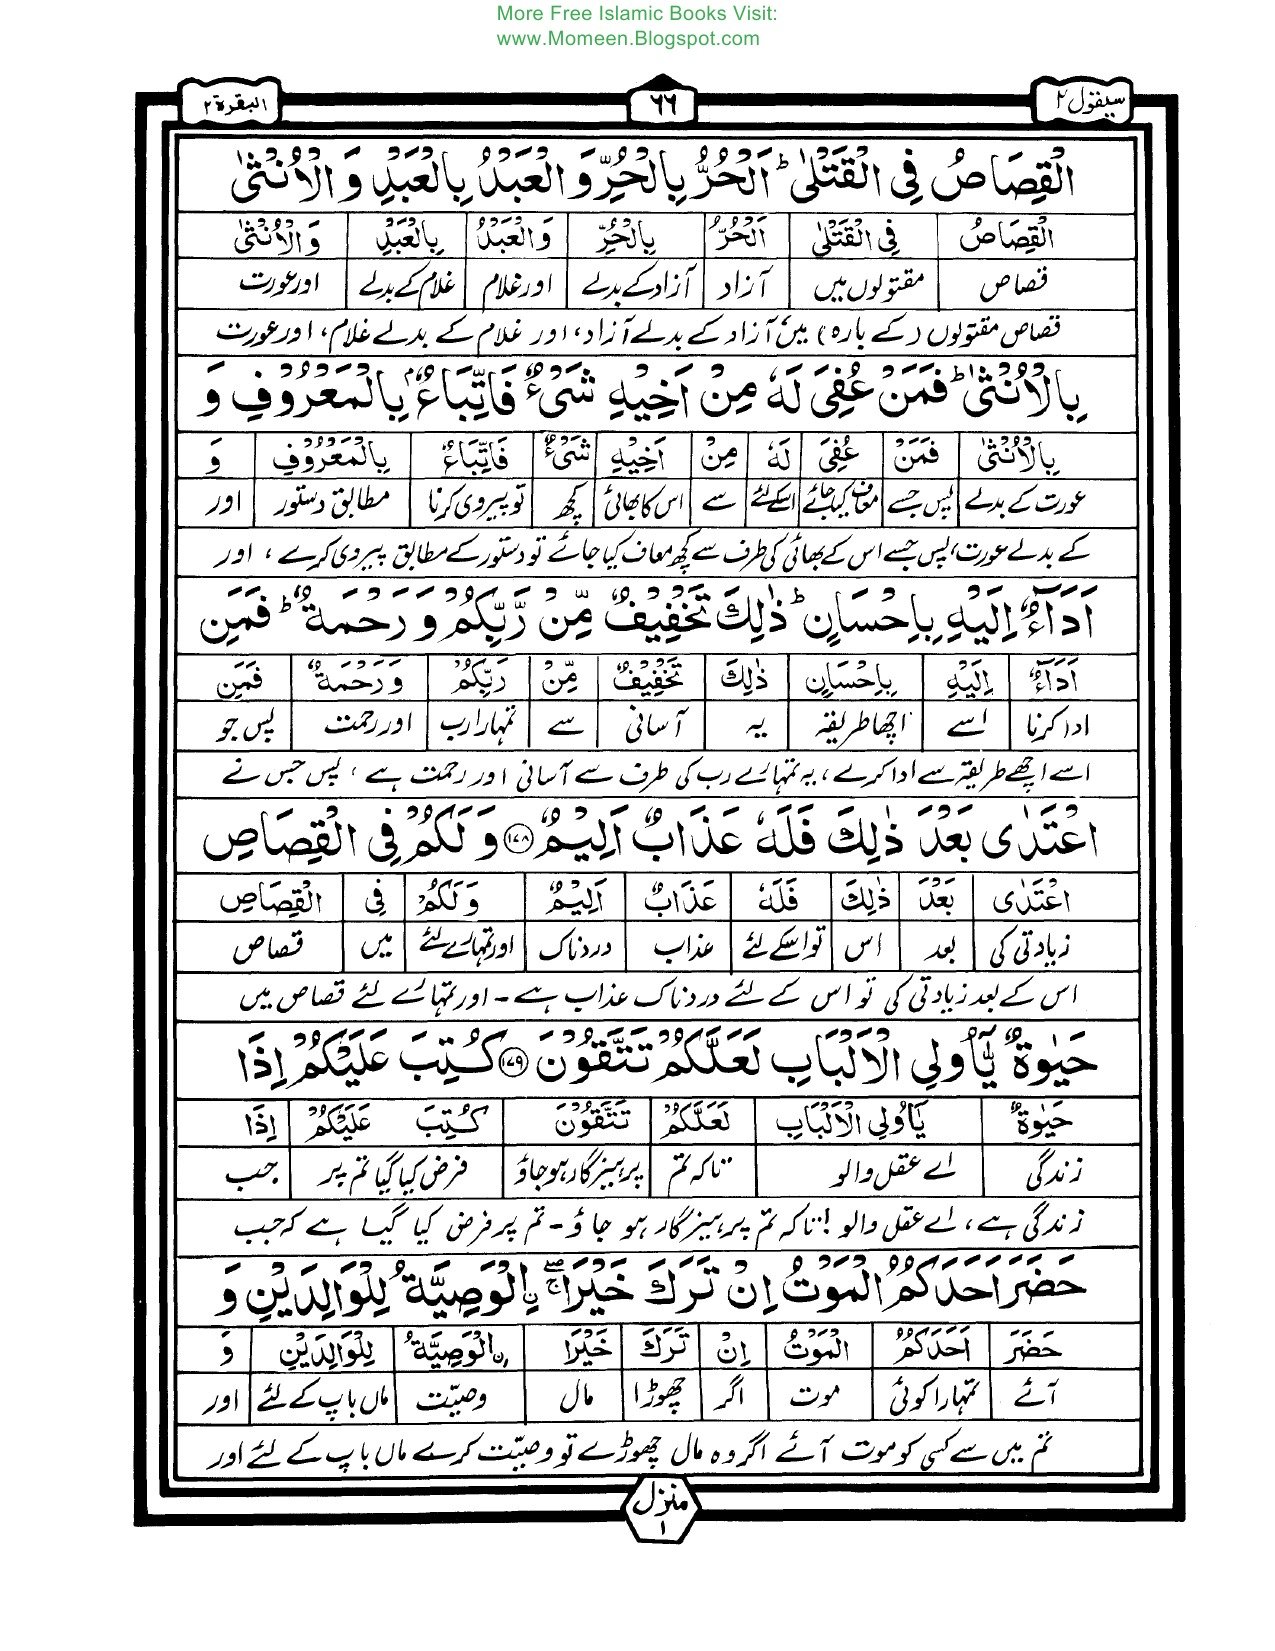 More Free Islamic Books Visit:
www.Momeen.Blogspot.com
سیقول ۲
۶۶
البقرة ۲
الْقِصَاصُ فِی الْقَتْلٰی ؕ اَلْحُرُّ بِالْحُرِّ وَ الْعَبْدُ بِالْعَبْدِ وَ الْاُنْثٰی
الْقِصَاصُ فِی الْقَتْلٰی اَلْحُرُّ بِالْحُرِّ وَالْعَبْدُ بِالْعَبْدِ وَالْاُنْثٰی
قصاص مقتولوں میں آزاد آزاد کے بدلے اور غلام غلام کے بدلے اور عورت
قصاص مقتولوں (کے بارہ) میں آزاد کے بدلے آزاد، اور غلام کے بدلے غلام، اور عورت
بِالْاُنْثٰی ؕ فَمَنْ عُفِیَ لَهٗ مِنْ اَخِیْهِ شَیْءٌ فَاتِّبَاعٌۢ بِالْمَعْرُوْفِ وَ
بِالْاُنْثٰی فَمَنْ عُفِیَ لَهٗ مِنْ اَخِیْهِ شَیْءٌ فَاتِّبَاعٌ بِالْمَعْرُوْفِ وَ
عورت کے بدلے پس جسے معاف کیا جائے اسکے لئے سے اس کا بھائی کچھ تو پیروی کرنا مطابق دستور اور
کے بدلے عورت، پس جسے اس کے بھائی کی طرف سے کچھ معاف کیا جائے تو دستور کے مطابق پیروی کرے، اور
اَدَآءٌ اِلَیْهِ بِاِحْسَانٍ ؕ ذٰلِكَ تَخْفِیْفٌ مِّنْ رَّبِّكُمْ وَ رَحْمَةٌ ؕ فَمَنِ
اَدَآءٌ اِلَیْهِ بِاِحْسَانٍ ذٰلِكَ تَخْفِیْفٌ مِّنْ رَبِّكُمْ وَرَحْمَةٌ فَمَنِ
ادا کرنا اسے اچھا طریقہ یہ آسانی سے تمہارا رب اور رحمت پس جو
اسے اچھے طریقہ سے ادا کرے، یہ تمہارے رب کی طرف سے آسانی اور رحمت ہے، پس جس نے
اعْتَدٰی بَعْدَ ذٰلِكَ فَلَهٗ عَذَابٌ اَلِیْمٌ ۝۱۷۸ وَ لَكُمْ فِی الْقِصَاصِ
اعْتَدٰی بَعْدَ ذٰلِكَ فَلَهٗ عَذَابٌ اَلِیْمٌ وَلَكُمْ فِی الْقِصَاصِ
زیادتی کی بعد اس تو اسکے لئے عذاب دردناک اور تمہارے لئے میں قصاص
اس کے بعد زیادتی کی تو اس کے لئے دردناک عذاب ہے۔ اور تمہارے لئے قصاص میں
حَیٰوةٌ یّٰۤاُولِی الْاَلْبَابِ لَعَلَّكُمْ تَتَّقُوْنَ ۝۱۷۹ كُتِبَ عَلَیْكُمْ اِذَا
حَیٰوةٌ یّٰاُولِی الْاَلْبَابِ لَعَلَّكُمْ تَتَّقُوْنَ كُتِبَ عَلَیْكُمْ اِذَا
زندگی اے عقل والو تاکہ تم پرہیزگار ہوجاؤ فرض کیا گیا تم پر جب
زندگی ہے، اے عقل والو! تاکہ تم پرہیزگار ہو جاؤ۔ تم پر فرض کیا گیا ہے کہ جب
حَضَرَ اَحَدَكُمُ الْمَوْتُ اِنْ تَرَكَ خَیْرَا ۖۚ اِ۟لْوَصِیَّةُ لِلْوَالِدَیْنِ وَ
حَضَرَ اَحَدَكُمُ الْمَوْتُ اِنْ تَرَكَ خَیْرَا اِ۟لْوَصِیَّةُ لِلْوَالِدَیْنِ وَ
آئے تمہارا کوئی موت اگر چھوڑا مال وصیّت ماں باپ کے لئے اور
تم میں سے کسی کو موت آئے اگر وہ مال چھوڑے تو وصیّت کرے ماں باپ کے لئے اور
منزل
۱